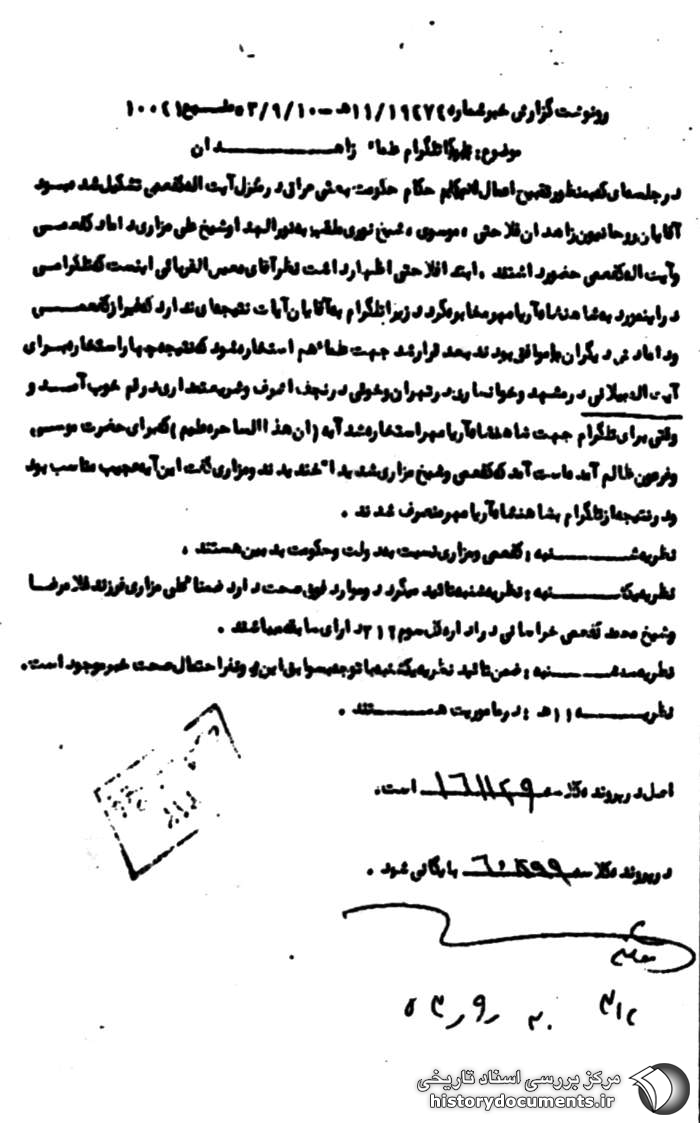 رونوشت گزارش خبر شماره ۱۱/۱۹۴۷۴ه‍ - ۵۳/۹/۱۰ منبع ۱۰۰۲۱
موضوع: تلگرام علماء زاهدان
در جلسه‌ای که بمنظور تقبیح اعمال حکام حکومت بعثی عراق در منزل آیت اله کفعمی تشکیل شده بود
آقایان روحانیون زاهدان فلاحتی، موسوی، شیخ نوری ملقب به نورالهدا و شیخ علی مزاری داماد کفعمی
و آیت اله کفعمی حضور داشتند. ابتدا فلاحتی اظهار داشت نظر آقای اینست که تلگرامی
در اینمورد به شاهنشاه آریامهر مخابره گردد زیرا تلگرام به آقایان آیات نتیجه‌ای ندارد که غیر از کفعمی
و دامادش دیگران موافق بودند بعد قرار شد جهت علماء هم استخاره شود که نتیجه چهار استخاره برای
آیت اله میلانی در مشهد و خوانساری در تهران و خوئی در نجف اشرف و شریعتمداری در قم خوب آمد و
وقتی برای تلگرام جهت شاهنشاه آریامهر استخاره شد آیه (ان هذا الساحر علیم) که برای حضرت موسی
و فرعون ظالم آمده است آمد که کفعمی و شیخ مزاری شدیداً خندیدند و مزاری گفت این آیه عجیب مناسب بود
و در نتیجه از تلگرام بشاهنشاه آریامهر منصرف شدند.
نظریه شنبه: کفعمی و مزاری نسبت به دولت و حکومت بدبین هستند.
نظریه یکشنبه: نظریه شنبه تائید میگردد و موارد فوق صحت دارد ضمناً علی مزاری فرزند غلامرضا
و شیخ محمد کفعمی خراسانی در اداره کل سوم ۳۱۲ دارای سابقه میباشند.
نظریه سه‌شنبه: ضمن تائید نظریه یکشنبه با توجه بسوابق این دو نفر احتمال صحت خبر موجود است.
نظریه ۱۱ه‍: در ماموریت هستند.
اصل در پرونده کلاسه ۱۶۱۱۲۹ است.
در پرونده کلاسه ۶۰۵۹۹ بایگانی شود.
۳۱۲
۲۰ ر ۹ ر ۵۳
مرکز بررسی اسناد تاریخی
historydocuments.ir